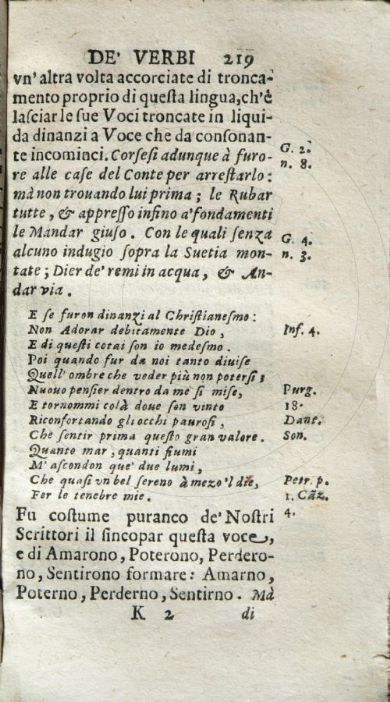 DE' VERBI 219
vn' altra volta accorciate di tronca-
mento proprio di queſta lingua, ch'è
laſciar le ſue Voci troncate in liqui-
da dinanzi a Voce che da conſonan-
te incominci. Corſeſi adunque à furo- G. 2.
re alle caſe del Conte per arreſtarlo: n. 8.
mà non trouando lui prima; le Rubar
tutte, & appreſſo inſino a'fondamenti
le Mandar giuſo. Con le quali ſenza G. 4.
alcuno indugio ſopra la Suetia mon- n. 3.
tate; Dier de' remi in acqua, & An-
dar via.
E ſe furon dinanzi al Chriſtianeſmo:
Non Adorar debitamente Dio, Inf. 4.
E di queſti cotai ſon io medeſmo.
Poi quando fur da noi tanto diuiſe
Quell' ombre che veder più non poterſi;
Nuouo penſier dentro da me ſi miſe, Purg.
E tornommi colà doue ſon vinto 18.
Riconfortando gli occhi pauroſi, Dant.
Che ſentir prima queſto gran valore. Son.
Quanto mar, quanti fiumi
M' aſcondon que' due lumi,
Che quaſi vn bel ſereno à mezo 'l die, Petr. p.
Fer le tenebre mie. 1. Cāz.
Fu coſtume puranco de' Noſtri 4.
Scrittori il ſincopar queſta voce,
e di Amarono, Poterono, Perdero-
no, Sentirono formare: Amarno,
Poterno, Perderno, Sentirno. Mà
K 2 di